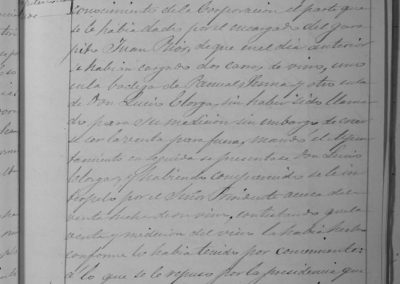 conocimiento de la Corporacion el parte que
se le habia dado por el encargado del
Juan Ruiz, de que en el dia anterior
se habian cargado dos carros de vino, uno
en la bodega de Manuel y otro en la
de Don Lucio sin haber sido llama
do para su medicion sin embargo de
se con la venta para fuera, mandó el
tamiento en seguida se presentase Don Lucio
y habiendo comparecido se le in
terpeló por el Señor Presidente acerca de la
venta hecha de su vino, contestando que la
venta y medicion del vino la habia hecho
conforme lo habia tenido por conveniente
á lo que se le repuso por la presidencia que